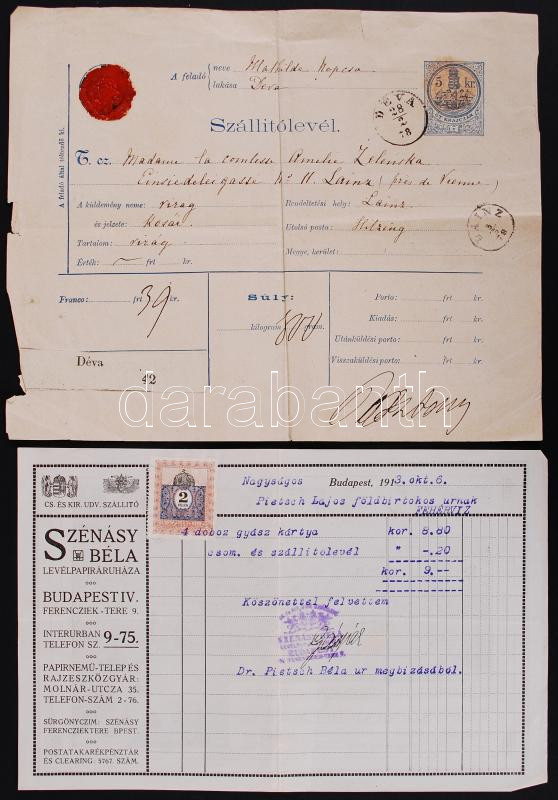 A feladó neve Mathilda Nopcsa
lakása Déva
5 kr.
DÉVA
Szállitólevél.
A feladó által töltendő ki.
T. cz. Madame la comtesse Amelie Zelenska
Einsiedeleigasse No 11. Lainz (près de Vienne)
A küldemény neme: virag
Rendeltetési hely: Lainz
és jelzete: Kosár
Utolsó posta: Hitzing
LAINZ
Tartalom: virág
Megye, kerület:
Érték: frt kr.
Franco: frt 39 kr.
Súly:
kilogram 800 gram.
Porto: frt kr.
Kiadás: frt kr.
Utánküldési porto: frt kr.
Visszaküldési porto: frt kr.
Déva
42
darabanth
CS. ÉS KIR. UDV. SZÁLLITÓ
SZÉNÁSY
BÉLA
LEVÉLPAPIRÁRUHÁZA
BUDAPEST IV.
FERENCZIEK-TERE 9.
INTERURBAN
TELEFON SZ. 9-75.
PAPIRNEMŰ-TELEP ÉS
RAJZESZKÖZGYÁR:
MOLNÁR-UTCZA 35.
TELEFON-SZÁM 2-76.
SÜRGÖNYCZIM: SZÉNÁSY
FERENCZIEKTERE BPEST.
POSTATAKARÉKPÉNZTÁR
ÉS CLEARING: 5767. SZÁM.
2
Nagyságos Budapest, 1913.okt.6.
Pietsch Lajos földbirtokos urnak
FEHÉRVIZ
4 doboz gyász kártya kor. 8.80
csom. és szállitolevél " -.20
kor. 9.--
Köszönettel felvettem
Dr. Pietsch Béla ur megbizásából.